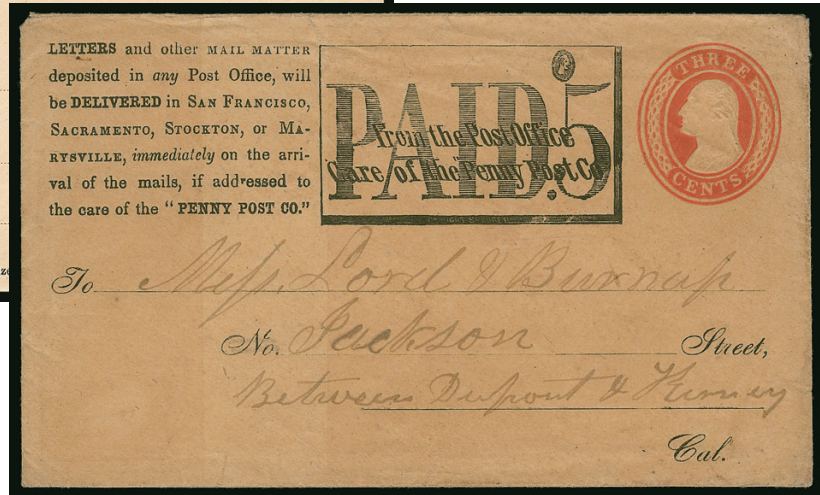 LETTERS and other MAIL MATTER
deposited in any Post Office, will
be DELIVERED in SAN FRANCISCO,
SACRAMENTO, STOCKTON, or MA-
RYSVILLE, immediately on the arri-
val of the mails, if addressed to
the care of the "PENNY POST CO."
PAID.5
From the Post Office
Care of the "Penny Post Co
THREE
CENTS
To Mess. Lord & Burnap
No. Jackson Street,
Between Dupont & Kearney
Cal.
ze